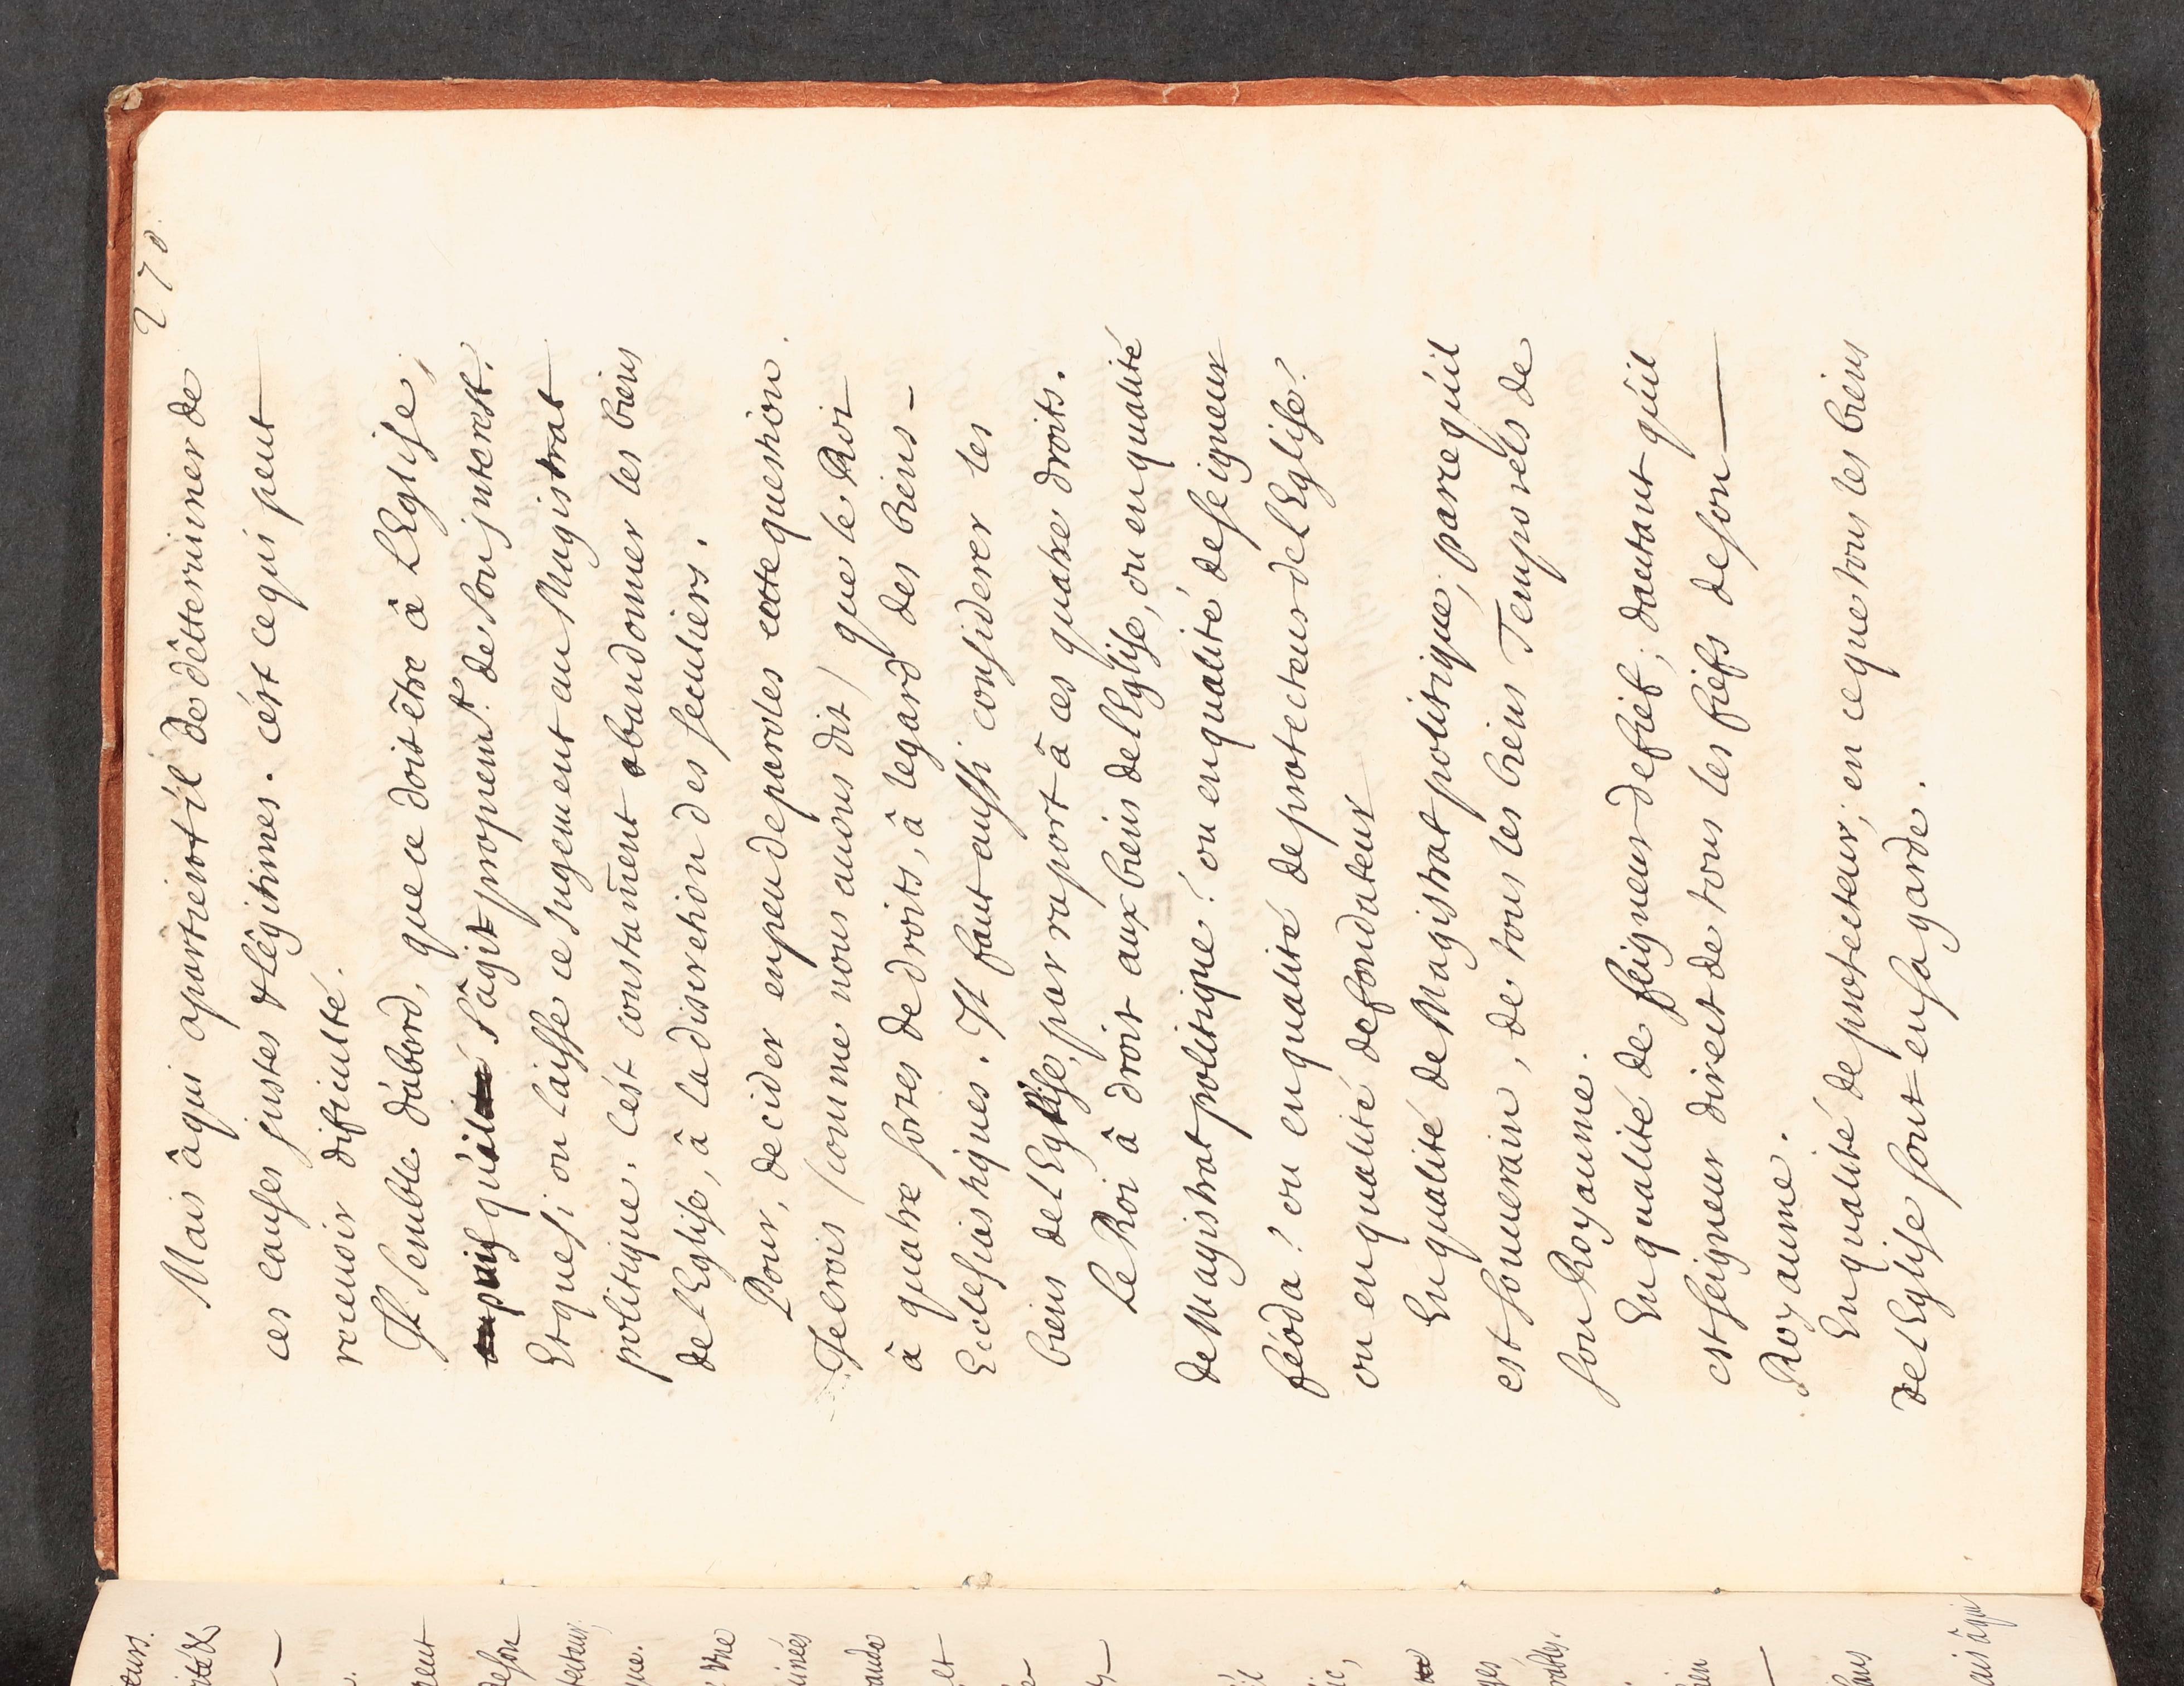 278
Mais âqui apartientil de dêtterminer de
ces causes justes & lêgitimes. cést cequi peut
recevoir difficulté.
Il Semble dábord, que ce doit être â LEglise,
puis quíl Sâgit proprem.t de Son jnterest.
Etquesi on laisse ce jugement au Magistrat
politique. Cést constam̃ent abandonner les biens
de LEglise, â la discretion des seculiers.
Pour, decider enpeu de paroles cette question.
Jecrois (comme nous auons dit) que le Roi
â quatre sortes de droits, â legard des biens -
Ecclesiastiques. Il faut aussi considerer les
biens de LEglise, par raport â ces quatre droits.
Le Roi â droit aux biens de LEglise, ou en qualité
de Magistrat politique? ou en qualité de seigneur
féoda? ou en qualité de protecteur de LEglise?
ou en qualité de fondateur
En qualité de Magistrat politique; parce quíl
est souuerain, de tous les biens Temporels de
son Royaume.
En qualité de seigneur de fief; dautant quíl
est seigneur direct de tous les fiefs de son —
Royaume.
En qualité de protecteur; en ce que tous les biens
de LEglise sont en sa garde.
teurs.
rent
de son
tecteur;
que.
vne
inées
lt
ic,
ges
rables.
ien
ais âqui